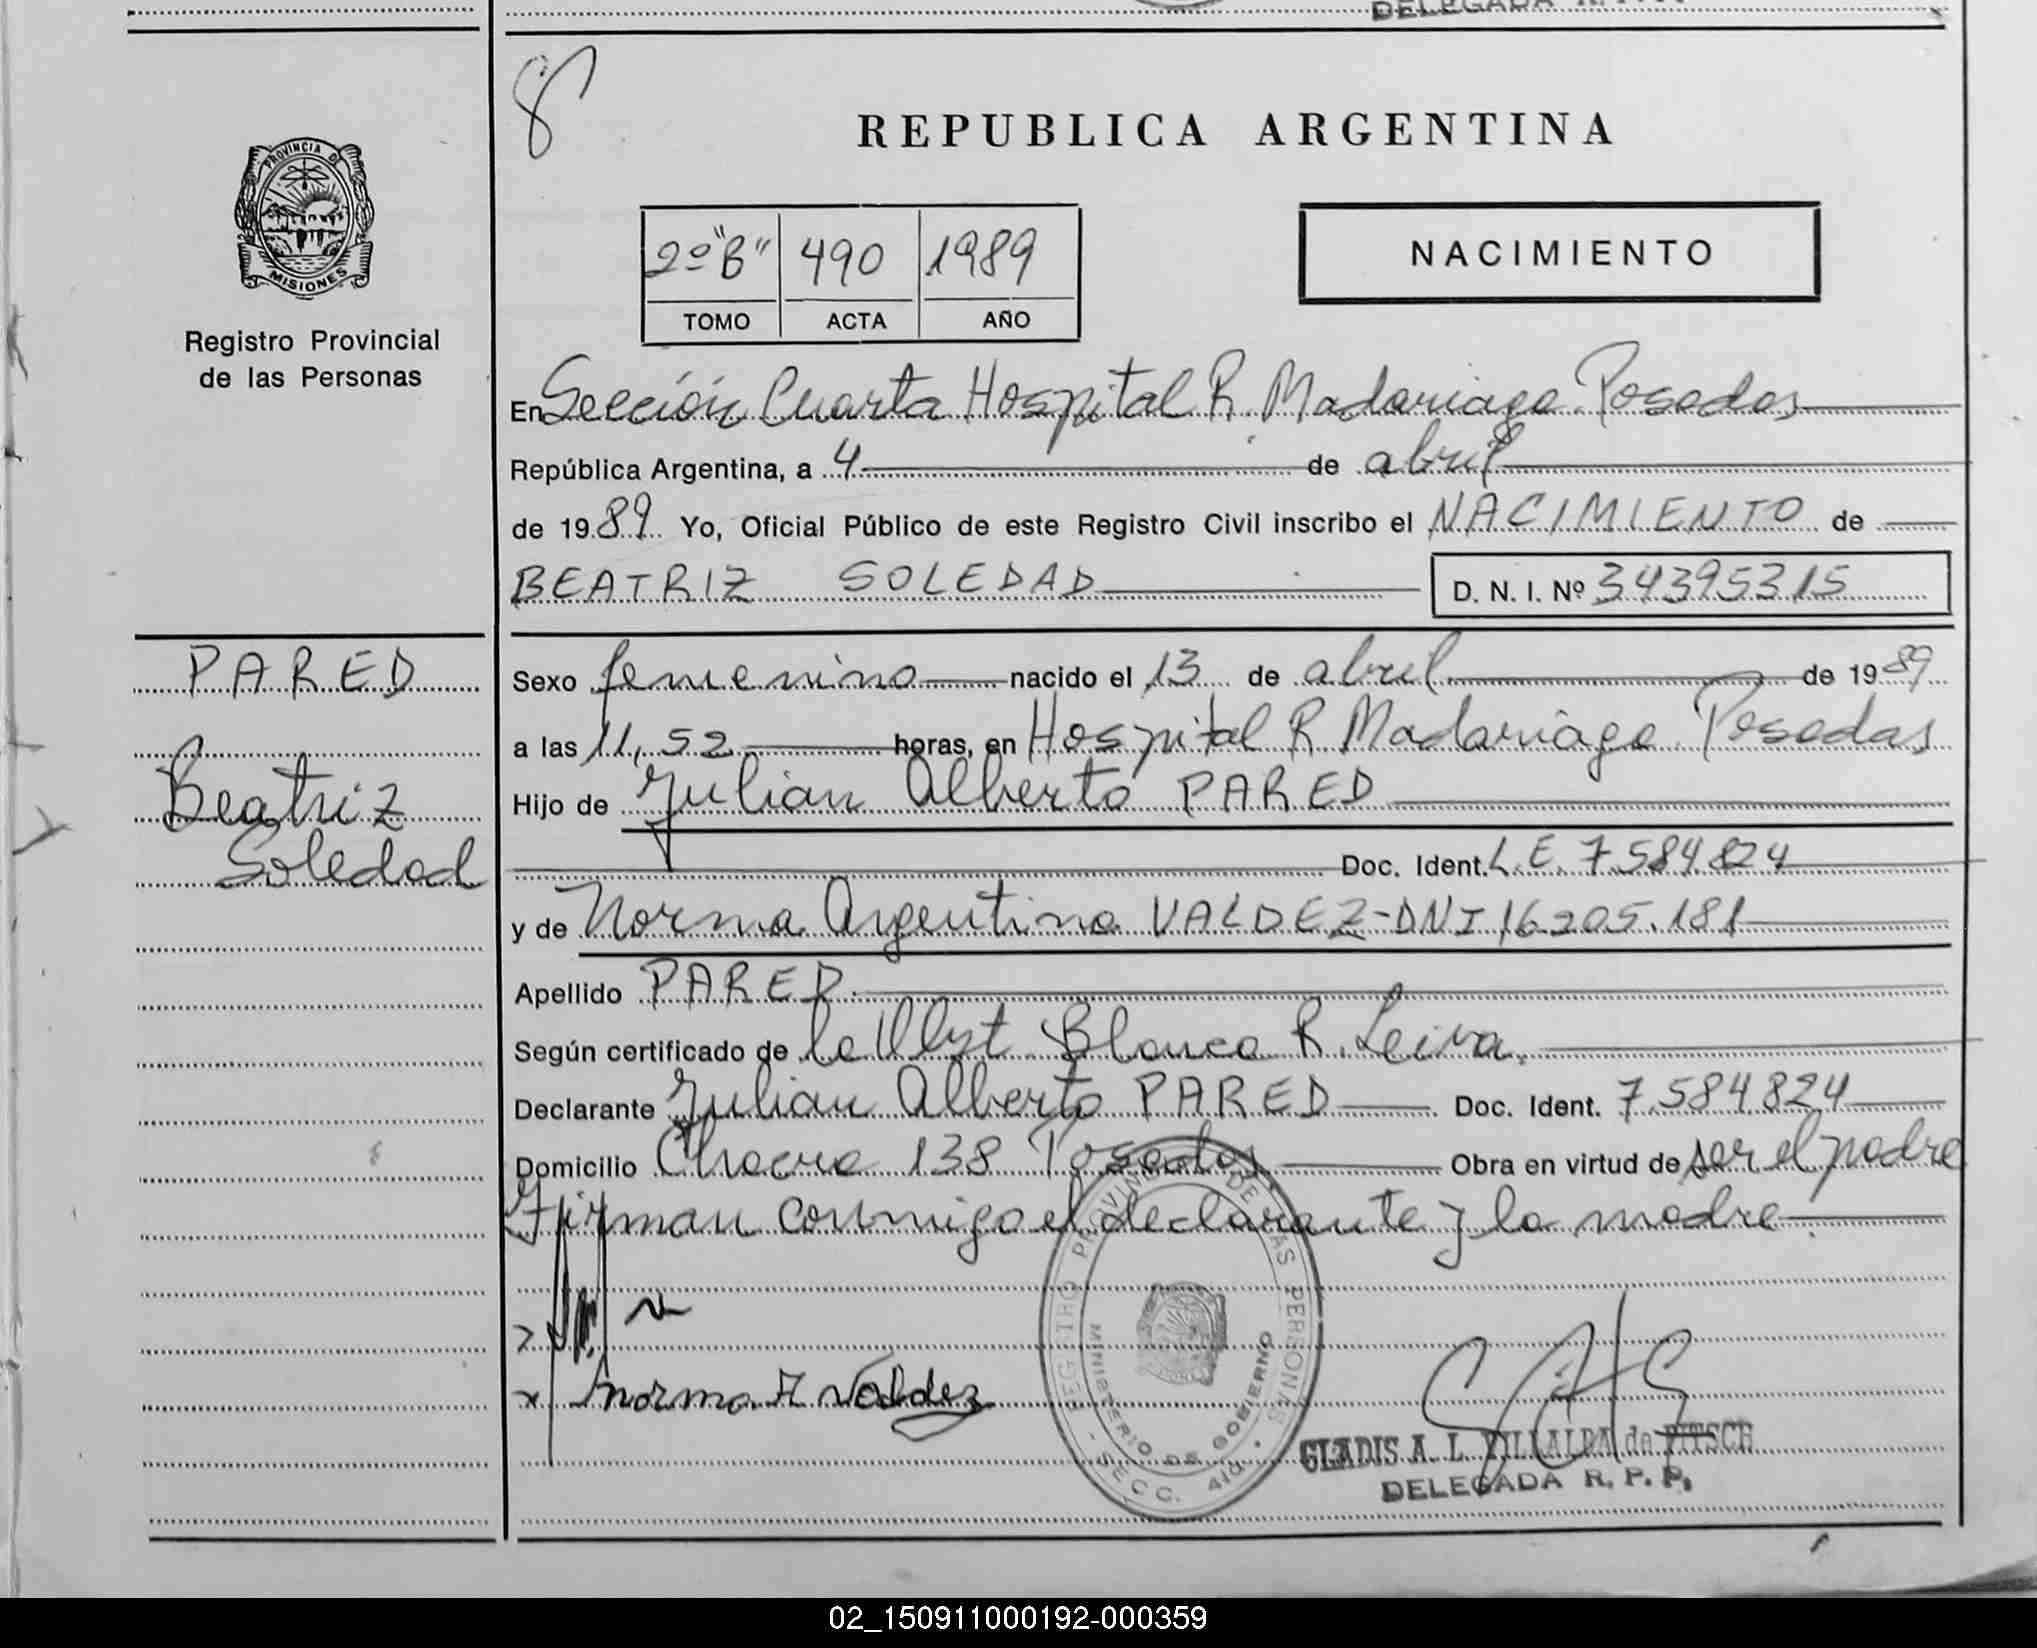 DELEGADA R.P.P.
8
PROVINCIA D
MISIONES
Registro Provincial
de las Personas
REPUBLICA ARGENTINA
2º "B" 490 1989
TOMO ACTA AÑO
NACIMIENTO
En Sección Cuarta Hospital R. Madariaga. Posadas
República Argentina, a 4 de abril
de 1989 Yo, Oficial Público de este Registro Civil inscribo el NACIMIENTO de
BEATRIZ SOLEDAD D. N. I. Nº 34395315
PARED
Beatriz
Soledad
Sexo femenino nacido el 13 de abril de 1989
a las 11,52 horas, en Hospital R Madariaga Posadas
Hijo de Julian Alberto PARED
Doc. Ident. L.E. 7.584.824
y de Norma Argentina VALDEZ-DNI 16.205.181
Apellido PARED
Según certificado de la Blanca R. Leiva.
Declarante Julian Alberto PARED Doc. Ident. 7.584824
Domicilio Chacra 138 Posadas Obra en virtud de ser el padre
Firman conmigo el declarante y la madre.
x Norma A Valdez
REGISTRO PROVINCIAL DE LAS PERSONAS
MINISTERIO DE GOBIERNO
- SECC. 4ta.
GLADIS A. L. VILLALBA de PITSCH
DELEGADA R. P. P.
02_150911000192-000359